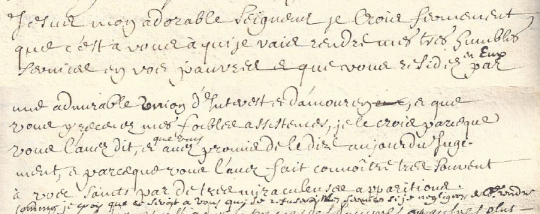 Jesus mon adorable Seigneur je crois fermement
que c'est a vous a qui je vais rendre mes tres humbles
services en vos pauvres e que vous residies en Eux par
une admirable union d'Interest e d'amour, e que
vous y recevez mes foibles assistences, je le crois parceque
vous l'avez dit, e que vous avez promis de le dire au jour du Juge
ment, e parceque vous l'avez fait connoitre tres souvent
a vos saints par de tres miraculeuses apparitions.
comme je croy que ce seroit a vous que je